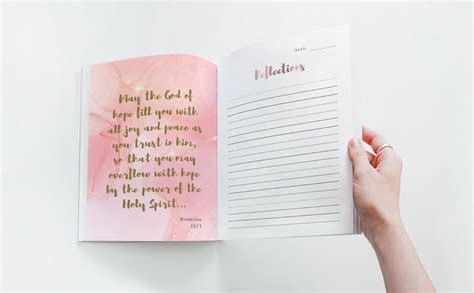 May the God of
hope fill you with
all joy and peace as
you trust in him,
so that you may
overflow with hope
by the power of the
Holy Spirit...
Romans
15:13
DATE:
Reflections